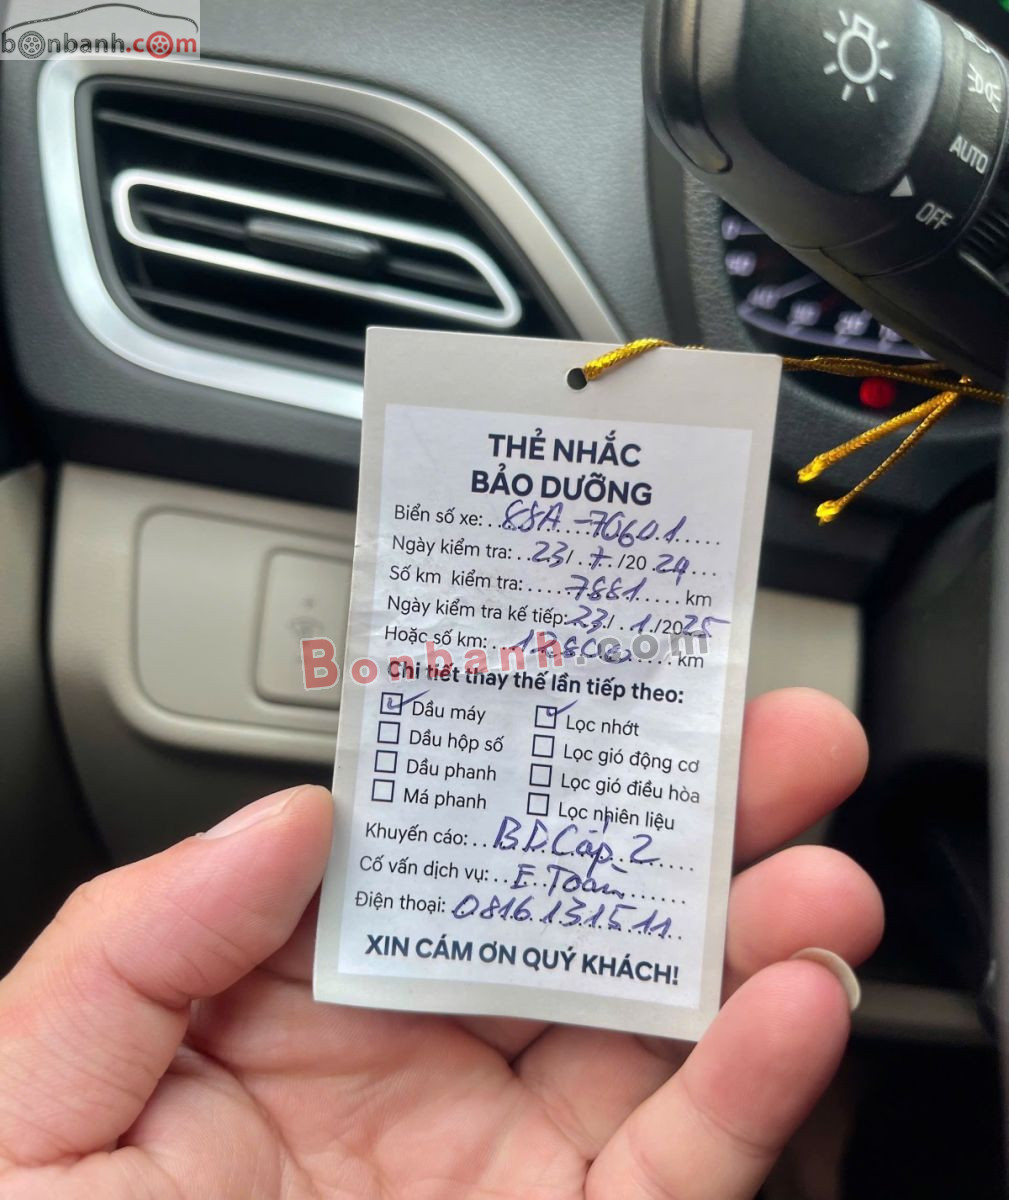 bonbanh.com
AUTO
OFF
THẺ NHẮC
BẢO DƯỠNG
Biển số xe: 88A-70601
Ngày kiểm tra: 23/7/2024
Số km kiểm tra: 7881 km
Ngày kiểm tra kế tiếp: 23/1/2025
Hoặc số km: km
Bonbanh.com
Chi tiết thay thế lần tiếp theo:
Dầu máy Lọc nhớt
Dầu hộp số Lọc gió động cơ
Dầu phanh Lọc gió điều hòa
Má phanh Lọc nhiên liệu
Khuyến cáo: BD Cấp 2
Cố vấn dịch vụ: E Toàn
Điện thoại: 0816131511
XIN CÁM ƠN QUÝ KHÁCH!